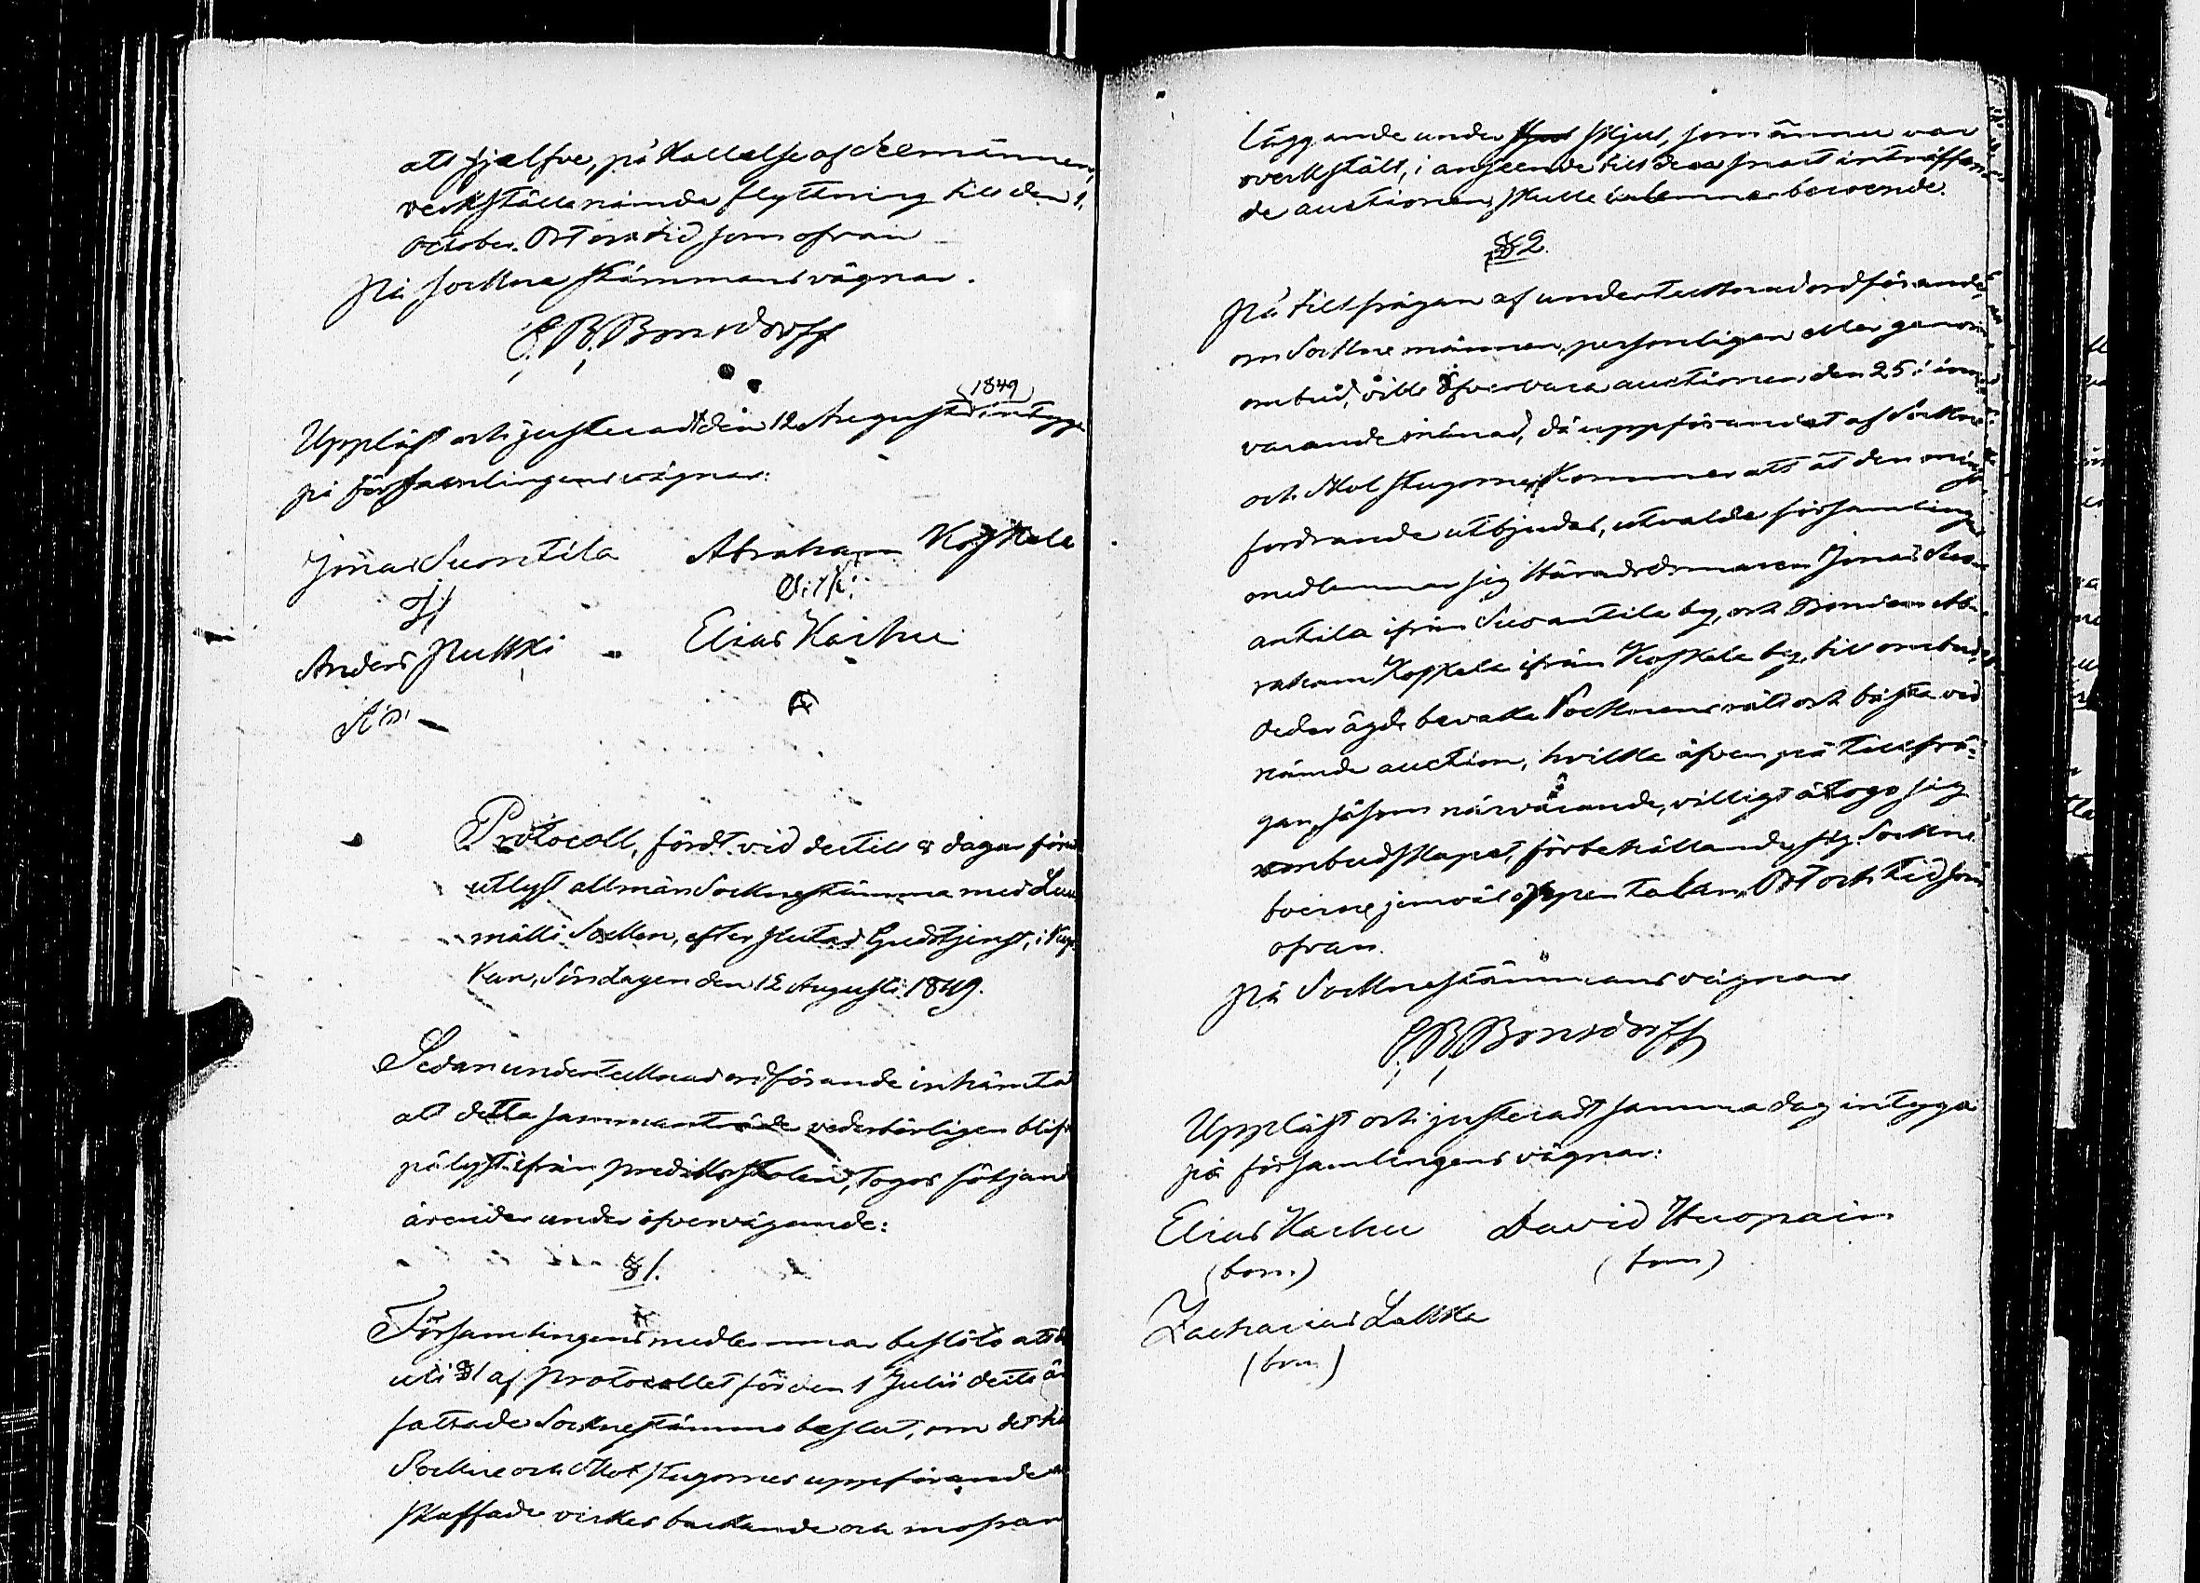 att sjelfve, på Kallelse af Åldermännen,
verkställa nämde flyttning till den 1.
October. Ort och tid som ofvan
På Sockne stämmans vägnar.
E. B. Bonsdorff
1849
Uppläst och justeradt den 12 Augusti intyga
på församlingens vägnar:
Jonas Suontila Abraham Koskela
Anders Pukki Elias Karhu
Protocoll, fördt vid dertill 8 dagar förut
utlyst allmän Socknestämma med Luu
mäki Socken, efter slutad Gudstjenst, i Kyr
kan, Söndagen den 12 Augusti 1849.
Sedan undertecknad ordförande inhämtat
att detta sammanträde vederbörligen blifvit
pålyst ifrån predikstolen, togos följande
ärenden under öfvervägande:
§ 1.
Församlingens medlemmar beslöto att
uti § 1 af Protocollet för den 1 Julii detta år
fattade Socknestämmo beslut, om det till
Sockne och Skol stugornes uppförande
skaffade virkes barkande och
läggande under skjul, som ännu var
overkstäldt, i anseende till den snart inträffan
de auctionen, skulle lemnas beroende.
§ 2.
På tillfrågan af undertecknad ordförande,
om Sockne männen, personligen eller genom
ombud, ville öfvervara auctionen den 25 i inne
varande månad, då uppförandet af Sockne
och Skol stugorne, Kommer att åt den minst
fordrande utbjudas, utvalde församlings
medlemmar sig Häradsdomaren Jonas Suo
antila ifrån Suoantila by, och Bonden Ab
raham Koskela ifrån Koskela by, till ombud,
de der ägde bevaka Socknens rätt och bästa vid
nämde auction, hvilka äfven på tillfrå-
gan, såsom närvarande, villigt åtogo sig
ombudskapet, förbehållande sig Sockne
boerne jemväl öppen talan. Ort och tid som
ofvan.
På Socknestämmans vägnar
E. B. Bonsdorff
Uppläst och justeradt samma dag intyga
på församlingens vägnar:
Elias Karhu David Huopain
(bom.) (bom)
Zacharias Lakka
(bom)